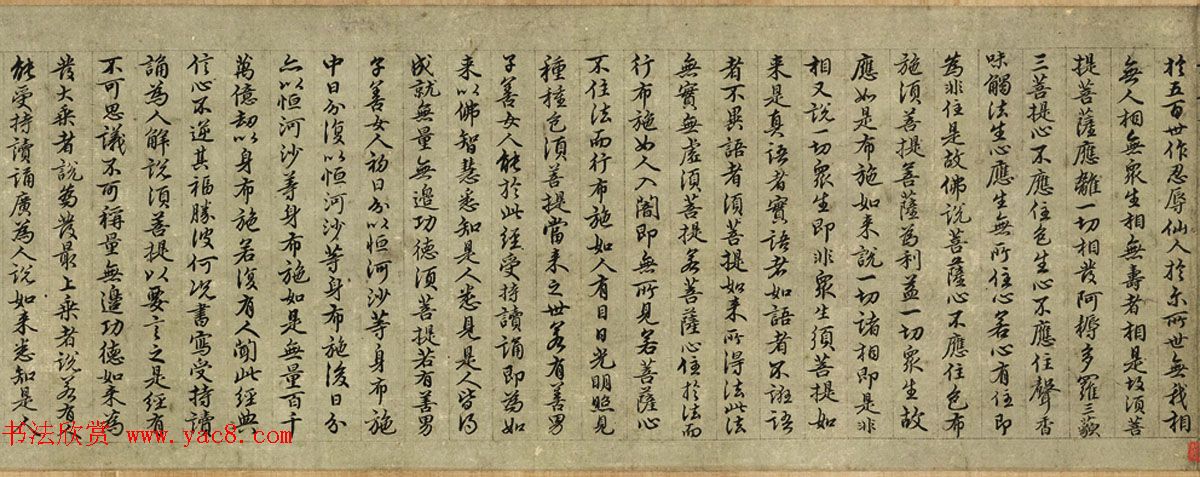 於五百世作忍辱仙人於尓所世無我相
無人相無眾生相無壽者相是故須菩
提菩薩應離一切相發阿耨多羅三藐
三菩提心不應住色生心不應住聲香
味觸法生心應生無所住心若心有住即
為非住是故佛說菩薩心不應住色布
施須菩提菩薩為利益一切眾生故
應如是布施如来說一切諸相即是非
相又說一切眾生即非眾生須菩提如
来是真語者實語者如語者不誑語
者不異語者須菩提如来所得法此法
無實無虛須菩提若菩薩心住於法而
行布施如人入闇即無所見若菩薩心
不住法而行布施如人有目日光明照見
種種色須菩提當来之世若有善男
子善女人能於此經受持讀誦即為如
来以佛智慧悉知是人悉見是人皆得
成就無量無邊功德須菩提若有善男
子善女人初日分以恒河沙等身布施
中日分復以恒河沙等身布施後日分
亦以恒河沙等身布施如是無量百千
萬億劫以身布施若復有人聞此經典
信心不逆其福勝彼何況書寫受持讀
誦為人解說須菩提以要言之是經有
不可思議不可稱量無邊功德如来為
發大乘者說為發最上乘者說若有人
能受持讀誦廣為人說如来悉知是人
书法欣赏 www.yac8.com